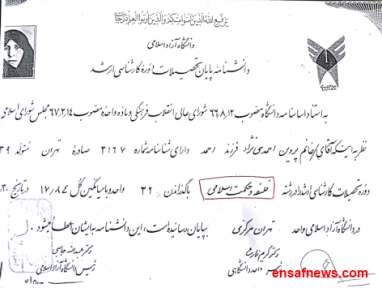 دانشگاه آزاد اسلامی
دانشنامه پایان تحصیلات دوره کارشناسی ارشد
به استناد اساسنامه دانشگاه مصوب ۶۶,۸,۱۲ شورای عالی انقلاب فرهنگی و ماده واحده مصوب ۶۷,۲,۱۴ مجلس شورای اسلامی
نظر به اینکه آقای/خانم پروین احمدی نژاد فرزند احمد دارای شناسنامه شماره ۲۱۶۷ صادره تهران متولد ۳۹
دوره تحصیلات کارشناسی ارشد را در رشته فلسفه و حکمت اسلامی با گذراندن ۳۶ واحد و با میانگین کل ۱۷,۸۷ در تاریخ
در دانشگاه آزاد اسلامی واحد تهران مرکزی بپایان رسانیده است، این دانشنامه به ایشان اعطا میشود.
رئیس واحد دانشگاهی
رئیس دانشگاه آزاد اسلامی
ensafnews.com